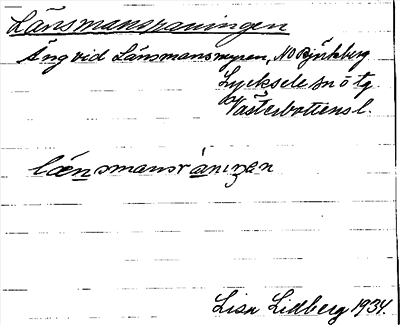 Länsmansraningen
Äng vid Länsmansmyren, NO Björkberg
Lycksele sn o tg.
Västerbottens l.
länsmansrániŋen
Lisa Lidberg 1934.